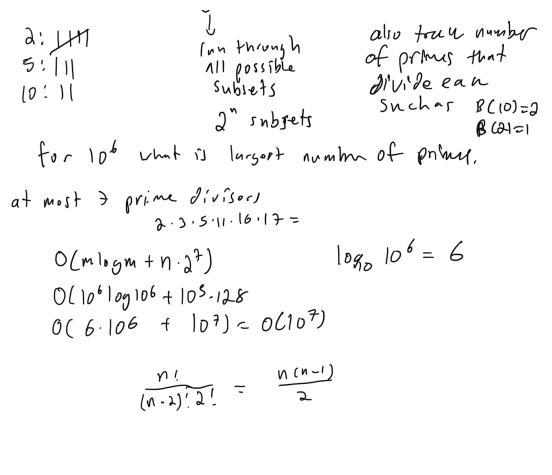 2: 卌
5: |||
10: ||
↓
run through
all possible
subsets
2^n subsets
also track number
of primes that
divide each
such as B(10)=2
B(2)=1
for 10^6 what is largest number of primes,
at most 7 prime divisors
2·3·5·11·16·17=
O(m log m + n·2^7)
O(10^6 log 10^6 + 10^5·128
O(6·10^6 + 10^7) = O(10^7)
log_10 10^6 = 6
n! / (n-2)! 2! = n(n-1) / 2